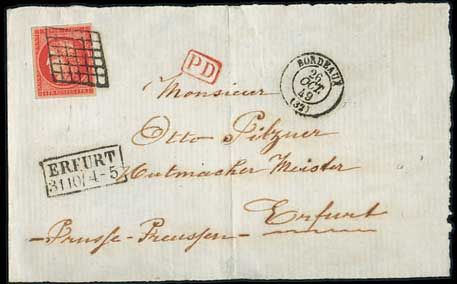 P.D
BORDEAUX
26
OCT
49
(32)
Monsieur
Otto Pilzner
Hutmacher Meister
ERFURT
31 10/4-5
Erfurt
Prusse-Preussen